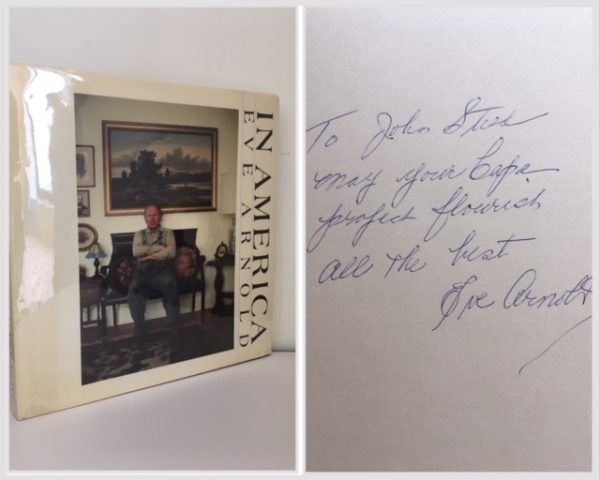 IN AMERICA
EVE ARNOLD
To John
may your Capa
project flourish
all the best
Eve Arnold